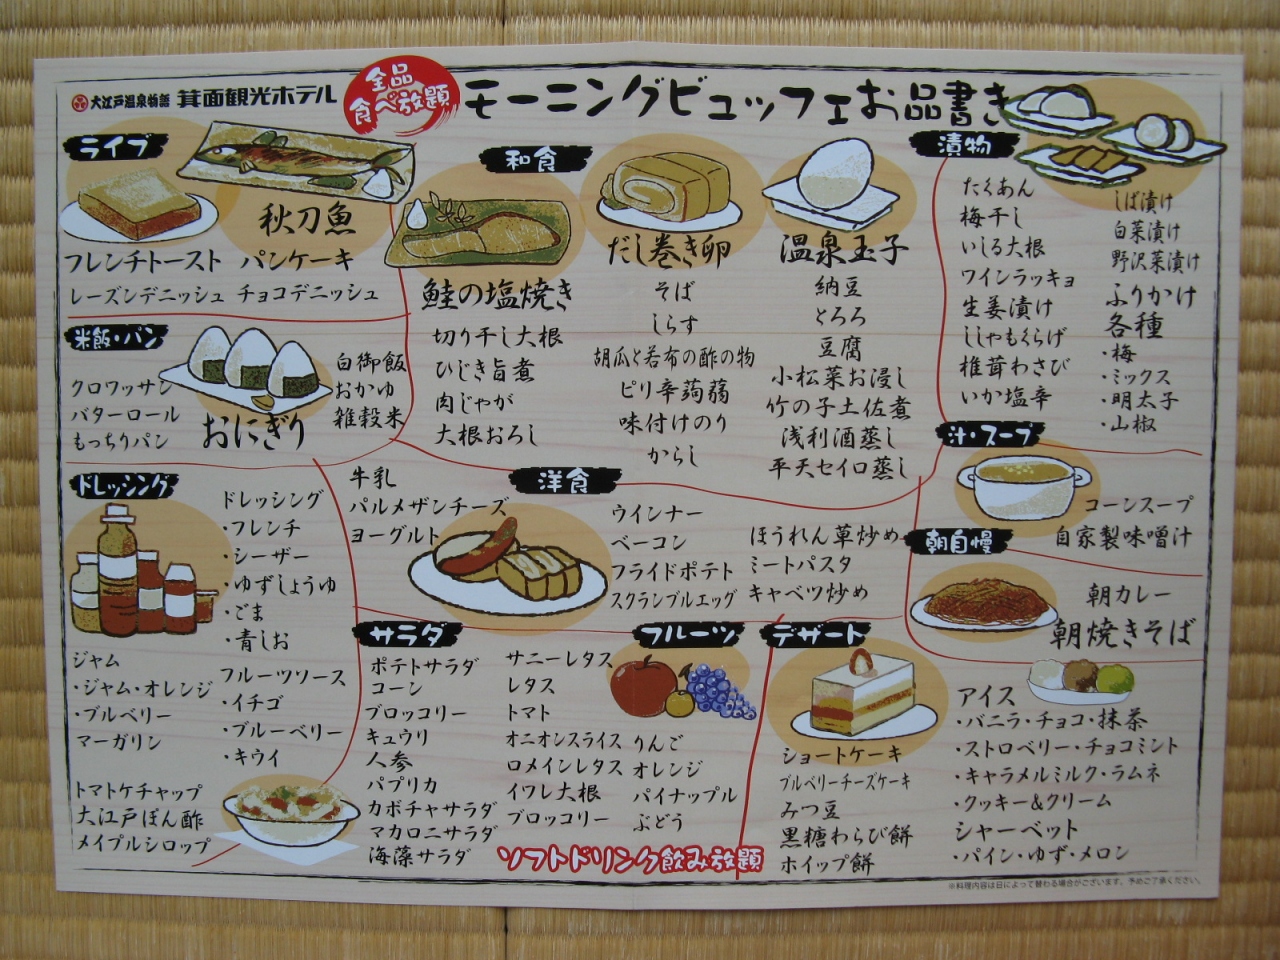 大江戸温泉物語 箕面観光ホテル
全品
食べ放題
モーニングビュッフェお品書き
ライブ
秋刀魚
フレンチトースト パンケーキ
レーズンデニッシュ チョコデニッシュ
米飯・パン
クロワッサン
バターロール
もっちりパン
おにぎり
白御飯
おかゆ
雑穀米
和食
鮭の塩焼き
切り干し大根
ひじき旨煮
肉じゃが
大根おろし
だし巻き卵
そば
しらす
胡瓜と若布の酢の物
ピリ辛蒟蒻
味付けのり
からし
温泉玉子
納豆
とろろ
豆腐
小松菜お浸し
竹の子土佐煮
浅利酒蒸し
平天セイロ蒸し
漬物
たくあん
梅干し
いしる大根
ワインラッキョ
生姜漬け
ししゃもくらげ
椎茸わさび
いか塩辛
しば漬け
白菜漬け
野沢菜漬け
ふりかけ
各種
・梅
・ミックス
・明太子
・山椒
汁・スープ
コーンスープ
自家製味噌汁
朝自慢
朝カレー
朝焼きそば
ドレッシング
ドレッシング
・フレンチ
・シーザー
・ゆずしょうゆ
・ごま
・青しお
ジャム
・ジャム・オレンジ
・ブルベリー
マーガリン
フルーツソース
・イチゴ
・ブルーベリー
・キウイ
トマトケチャップ
大江戸ぽん酢
メイプルシロップ
牛乳
パルメザンチーズ
ヨーグルト
洋食
ウインナー
ベーコン
フライドポテト
スクランブルエッグ
ほうれん草炒め
ミートパスタ
キャベツ炒め
サラダ
ポテトサラダ
コーン
ブロッコリー
キュウリ
人参
パプリカ
カボチャサラダ
マカロニサラダ
海藻サラダ
サニーレタス
レタス
トマト
オニオンスライス
ロメインレタス
イワレ大根
ブロッコリー
フルーツ
りんご
オレンジ
パイナップル
ぶどう
ソフトドリンク飲み放題
デザート
ショートケーキ
ブルベリーチーズケーキ
みつ豆
黒糖わらび餅
ホイップ餅
アイス
・バニラ・チョコ・抹茶
・ストロベリー・チョコミント
・キャラメルミルク・ラムネ
・クッキー&クリーム
シャーベット
・パイン・ゆず・メロン
※料理内容は日によって替わる場合がございます。予めご了承ください。